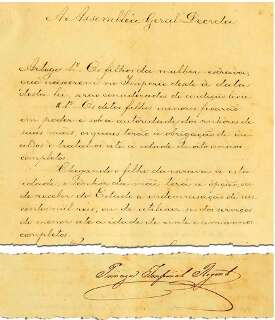 A Assembléa Geral Decreta
Artigo 1º Os filhos da mulher escrava,
que nascerem no Imperio desde a data
desta lei, serão considerados de condição livre.
§ 1º Os ditos filhos menores ficarão
em poder e sob a autoridade dos senhores de
suas mães, os quaes terão a obrigação de
crial-os e tratal-os até a idade de oito annos
completos.
Chegando o filho da escrava a esta
idade, o senhor da mãe terá a opção, ou
de receber do Estado a indemnisação de seis
centos mil reis, ou de utilisar-se dos serviços
do menor até a idade de vinte e um annos
completos.
Princeza Imperial Regente